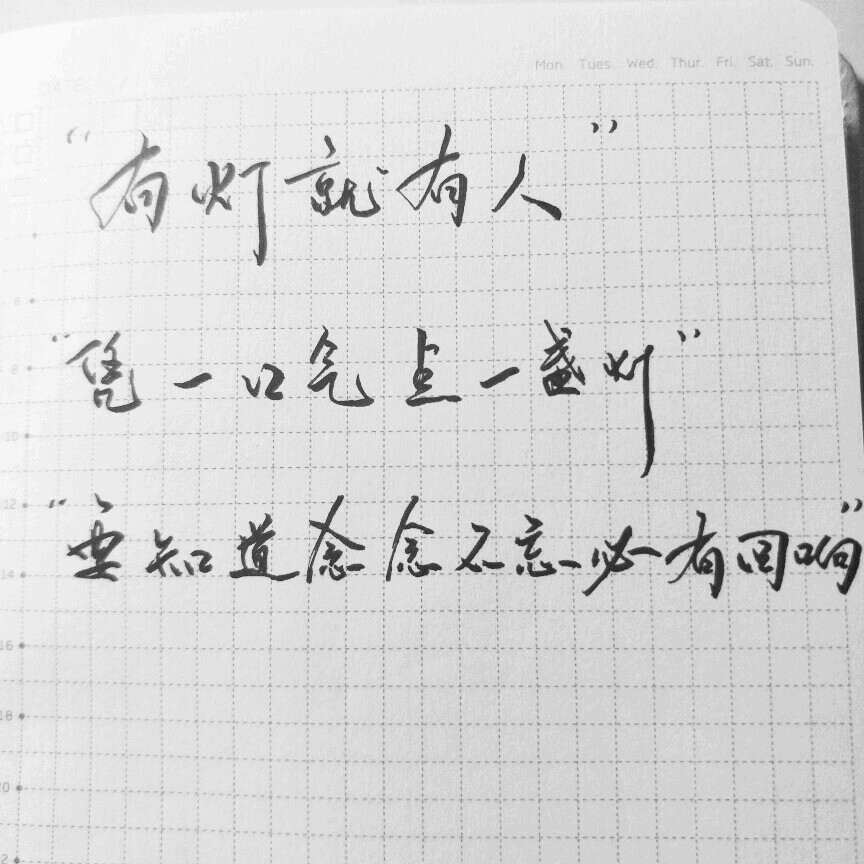 DATE: / /
Mon. Tues. Wed. Thur. Fri. Sat. Sun.
“有灯就有人”
6
“凭一口气点一盏灯”
8
10
12
“要知道念念不忘必有回响”
14
16
18
20
22